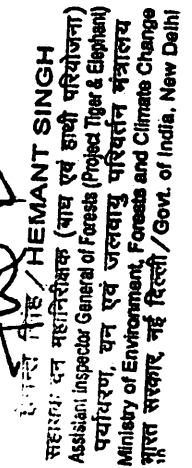 सिंह / HEMANT SINGH
सहायक वन महानिरीक्षक (बाघ एवं हाथी परियोजना)
Assistant Inspector General of Forests (Project Tiger & Elephant)
पर्यावरण, वन एवं जलवायु परिवर्तन मंत्रालय
Ministry of Environment, Forests and Climate Change
भारत सरकार, नई दिल्ली / Govt. of India, New Delhi